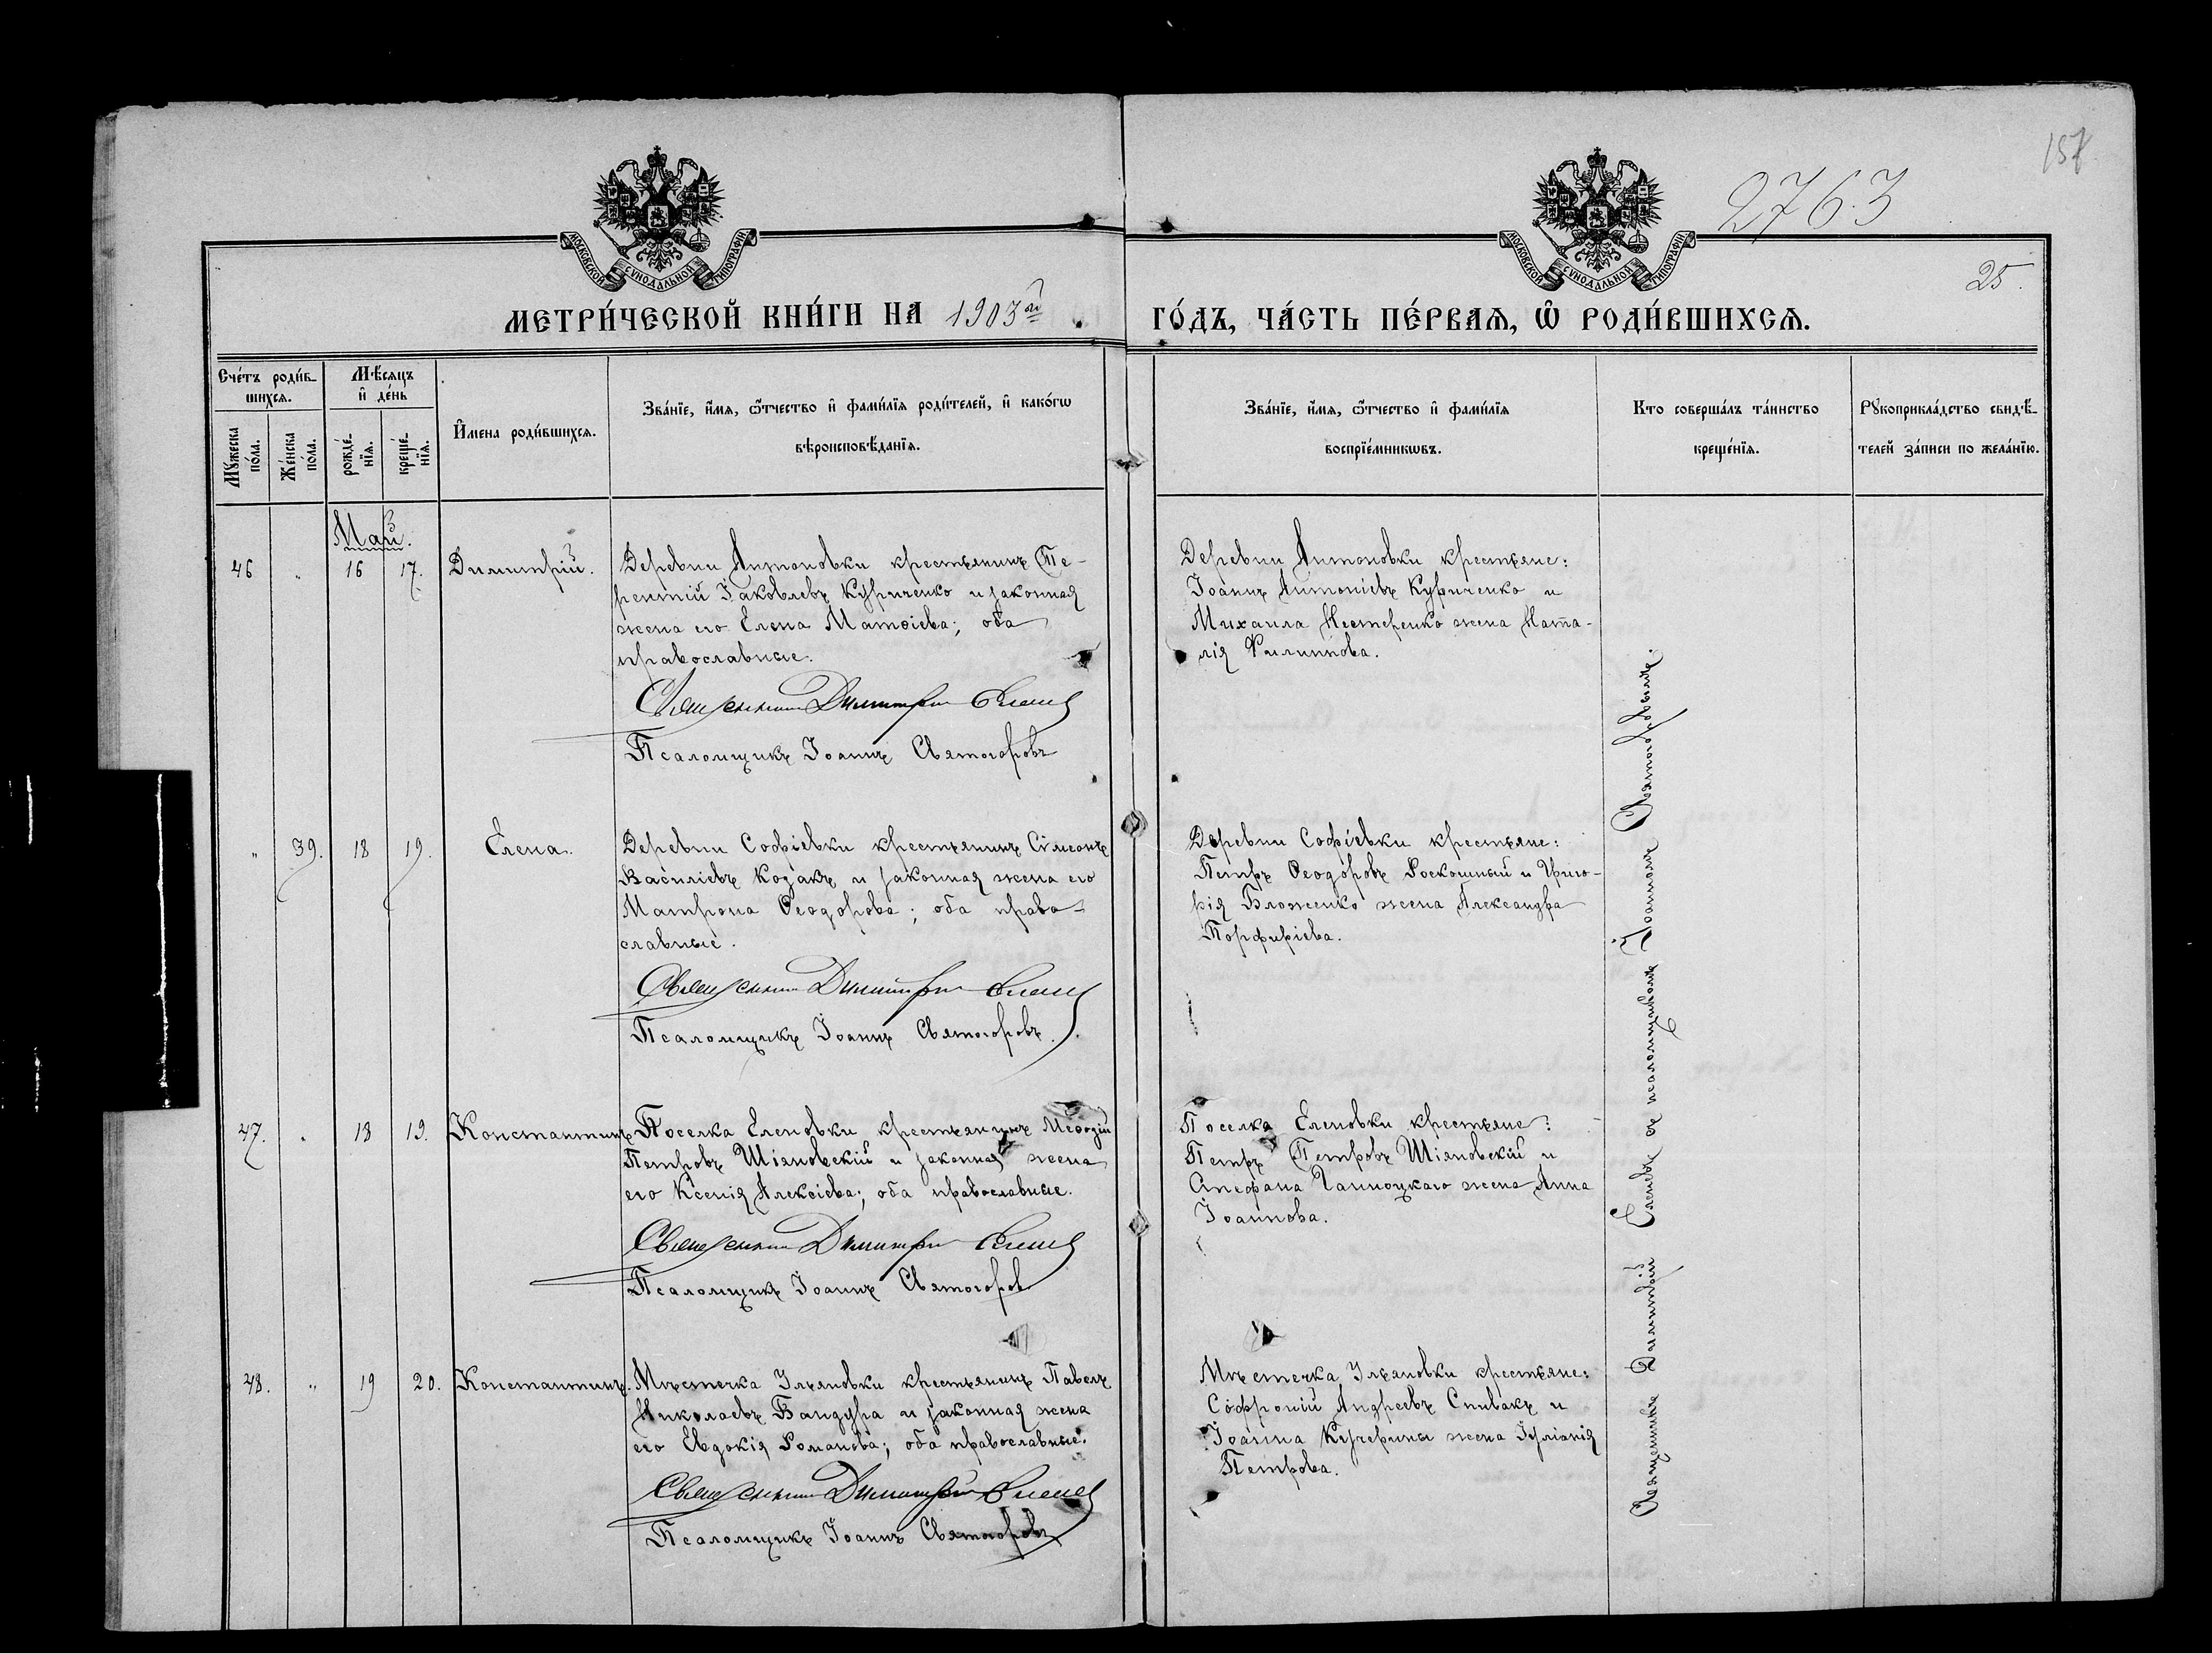 157
2763
25.
МОСКОВСКОЙ СУНОДАЛЬНОЙ ТИПОГРАФІИ
МОСКОВСКОЙ СУНОДАЛЬНОЙ ТИПОГРАФІИ
МЕТРИ́ЧЕСКОЙ КНИ́ГИ НА 1903й
ГО́ДЪ, ЧА́СТЬ ПЕ́РВАѦ, Ѡ РОДИ́ВШИХСѦ.
Сче́тъ роди́в-
шихсѧ.
Мѣ́сяцъ
и҆ де́нь
Мꙋ́жеска
по́ла.
Же́нска
по́ла.
рожде́-
нїѧ.
креще́-
нїѧ.
И҆мена роди́вшихсѧ.
Зва́нїе, и҆́мѧ, ѻ҆́тчество и҆ фами́лїѧ роди́телей, и҆ како́гѡ
вѣроисповѣ́данїѧ.
Зва́нїе, и҆́мѧ, ѻ҆́тчество и҆ фами́лїѧ
воспрїе́мникѡвъ.
Кто соверша́лъ та́инство
креще́нїѧ.
Рꙋкоприкла́дство свидѣ́-
телей за́писи по жела́нїю.
Май.
46 " 16 17. Димитрій.
Деревни Антоновки крестьянинъ Те-
рентій Іаковлевъ Куриченко и законная
жена его Елена Матѳіева; оба
православные.
Священникъ Димитрій
Псаломщикъ Іоаннъ Святогоровъ
Деревни Антоновки крестьяне:
Іоаннъ Антоніевъ Куриченко и
Михаила Нестеренко жена Ната-
лія Филиппова.
" 39. 18 19. Елена.
Деревни Софіевки крестьянинъ Сѵмеонъ
Василіевъ Козакъ и законная жена его
Матрона Ѳеодорова; оба право-
славные.
Священникъ Димитрій
Псаломщикъ Іоаннъ Святогоровъ.
Деревни Софіевки крестьяне:
Петръ Ѳеодоровъ Роскошный и Григо-
рія Бложенко жена Александра
Порфиріева.
47. " 18 19. Константинъ
Поселка Еленовки крестьянинъ Меѳодій
Петровъ Шіяновскій и законная жена
его Ксенія Алексіева; оба православные.
Священникъ Димитрій
Псаломщикъ Іоаннъ Святогоров
Поселка Еленовки крестьяне:
Петръ Петровъ Шіяновскій и
Стефана жена Анна
Іоаннова.
48. " 19 20. Константинъ.
Мѣстечка Ильяновки крестьянинъ Павелъ
Николаевъ Бандура и законная жена
его Евдокія Романова; оба православные.
Священникъ Димитрій
Псаломщикъ Іоаннъ Святогоровъ
Мѣстечка Ильяновки крестьяне:
Софроній Андреевъ Спивакъ и
Іоанна Кучерины жена Іуліанія
Петрова.
Священникъ Димитрій Еленевъ съ псаломщикомъ Іоанномъ Святогоровымъ.